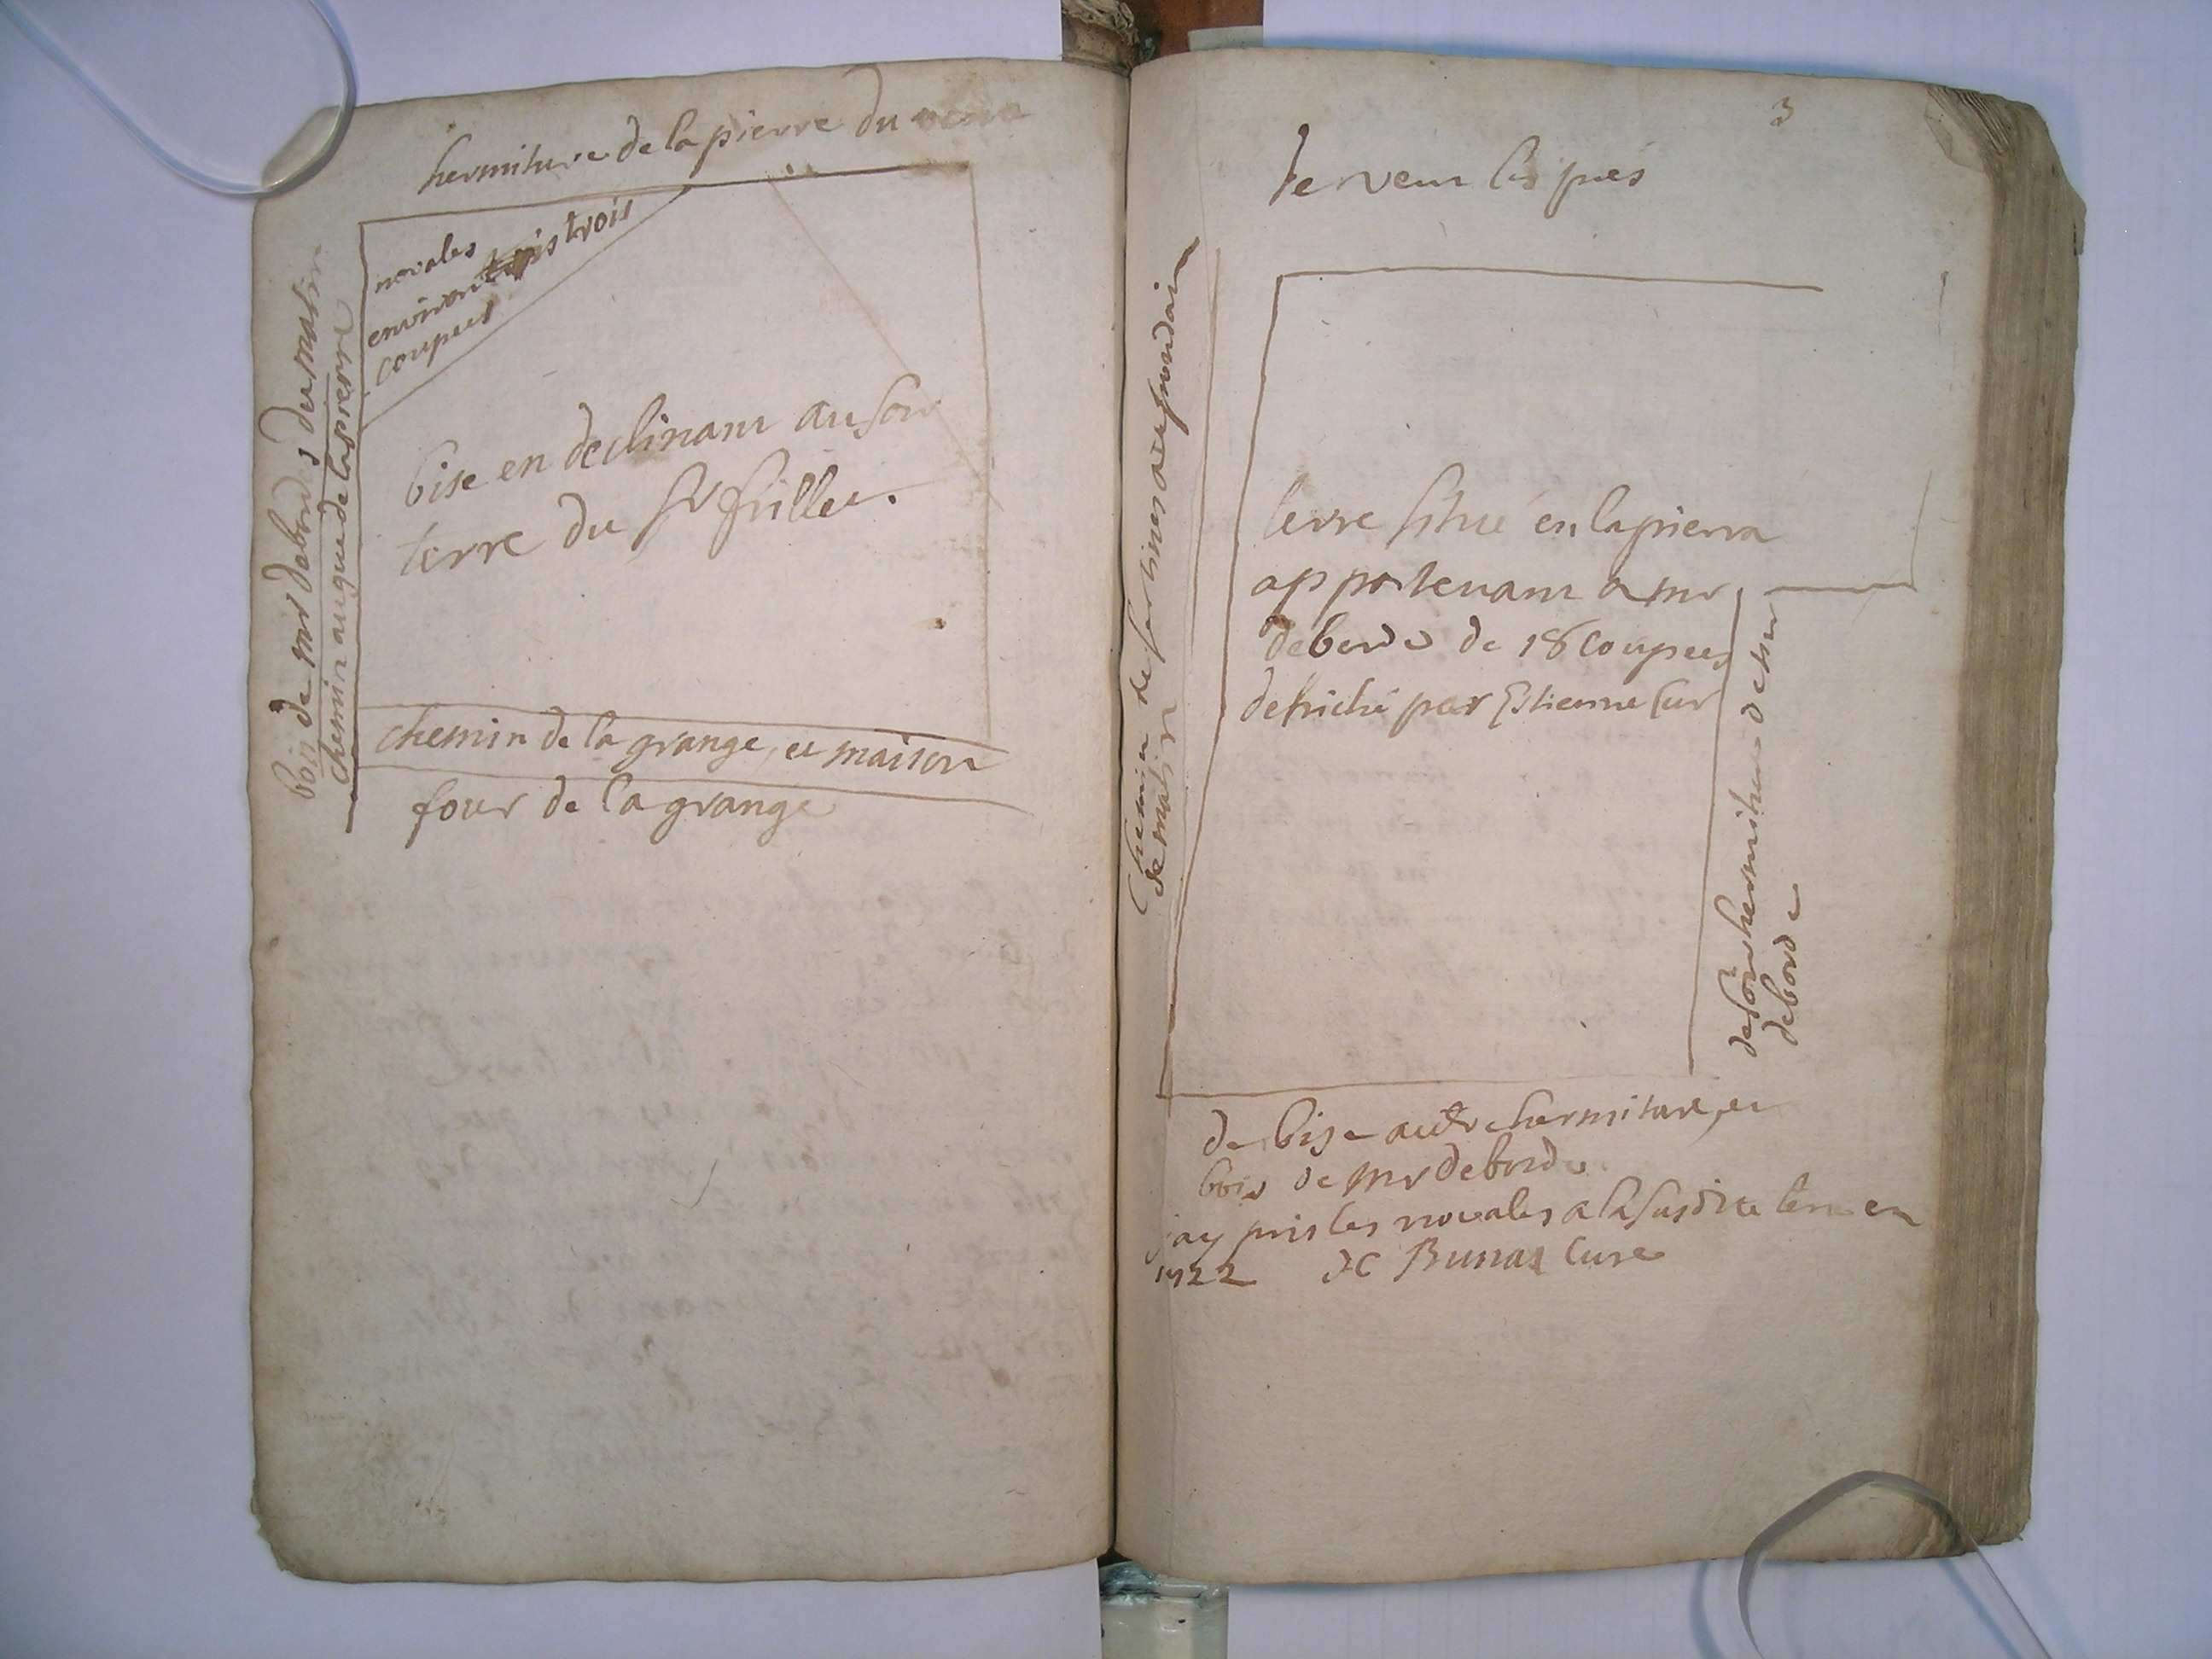 hermiture de la pierre du vent
novales
environ trois
coupees
bois de mrs debordes du matin
chemin au gue de la pierre
bise en declinant au soir
terre du sr frillet.
chemin de la grange, et maison
four de la grange
3
le vent les prés
chemin de
de matin
terre situé en la pierra
appartenant a mr
deborde de 18 coupees
defriché par Estienne Cur
de soir hermiture de mr
deborde
de bise autre hermiture, et
bois de mr deborde
jay pris les novales a la susditte terre en
1722 DC Brunat Curé